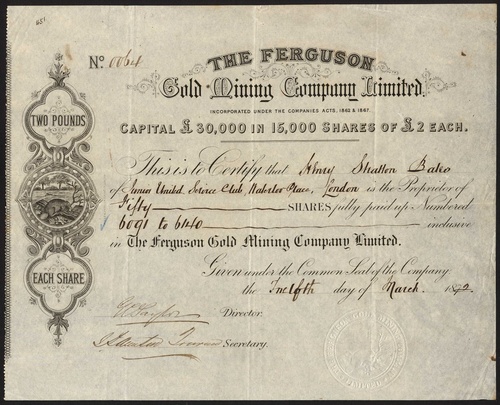 651
No. 0064
THE FERGUSON
Gold Mining Company Limited.
INCORPORATED UNDER THE COMPANIES ACTS, 1862 & 1867.
CAPITAL £30,000 IN 15,000 SHARES OF £2 EACH.
TWO POUNDS
EACH SHARE
This is to Certify that Henry Stratton Bates
of Junior United Service Club, Waterloo Place, London is the Proprietor of
Fifty SHARES fully paid up Numbered
6091 to 6140 inclusive
in The Ferguson Gold Mining Company Limited.
Given under the Common Seal of the Company
the Twelfth day of March 1872
Director.
Secretary.